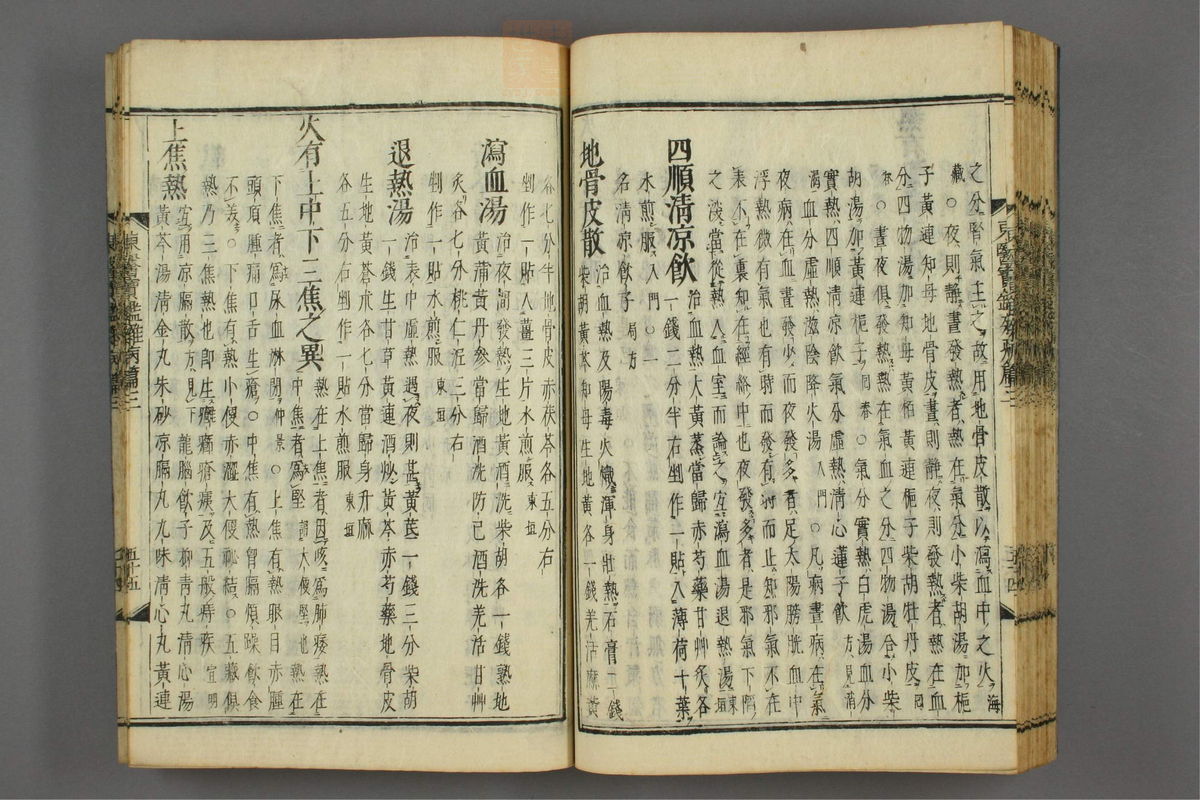 之分腎氣主之故用地骨皮散以瀉血中之火海
藏○夜則靜晝發熱者熱在氣分小柴胡湯加梔
子黃連知母地骨皮晝則靜夜則發熱者熱在血
分四物湯加知母黃栢黃連梔子柴胡牡丹皮
○晝夜俱發熱熱在氣血之分四物湯合小柴
胡湯加黃連梔子○氣分實熱白虎湯血分
實熱四順清凉飮氣分虛熱清心蓮子飮方見消
渴血分虛熱滋陰降火湯入門○凡病晝病在氣
夜病在血晝發少而夜發多者足太陽膀胱血中
浮熱微有氣也有時而發有時而止知邪氣不在
表不在裏知在經絡中也夜發多者是邪氣下陷
之深當從熱入血室而論之宜瀉血湯退熱湯東垣
四順清凉飮
冶血熱大黃蒸當歸赤芍藥甘艸炙各
一錢二分半右剉作一貼入薄荷十葉
水煎服入門○一
名清凉飮子局方
地骨皮散
冶血熱及陽毒火熾渾身壯熱石膏二錢
柴胡黃芩知母生地黃各一錢羌活麻黃
各七分半地骨皮赤茯苓各五分右
剉作一貼入薑三片水煎服東垣
瀉血湯
冶夜間發熱生地黃酒洗柴胡各一錢熟地
黃蒲黃丹參當歸酒洗防已酒洗羌活甘艸
炙各七分桃仁泥三分右
剉作一貼水煎服東垣
退熱湯
冶表中虛熱遇夜則甚黃芪一錢三分柴胡
一錢生甘草黃連酒炒黃芩赤芍藥地骨皮
生地黃蒼朮各七分當歸身升麻
各五分右剉作一貼水煎服東垣
火有上中下三焦之異
熱在上焦者因咳爲肺痿熱在
中焦者爲堅謂大便堅也熱在
下焦者爲尿血淋閉仲景○上焦有熱眼目赤腫
頭項腫痛口舌生瘡○中焦有熱胷膈煩躁飮食
不美○下焦有熱小便赤澁大便秘結○五藏俱
熱乃三焦熱也卽生癰癤瘡痍及五般痔疾宣明
上焦熱
宜用凉隔散方見下龍腦飮子抑靑丸淸心湯
黃芩湯淸金丸朱砂凉膈丸九味淸心丸黃連
東醫寶鑑雜病篇三
五十五